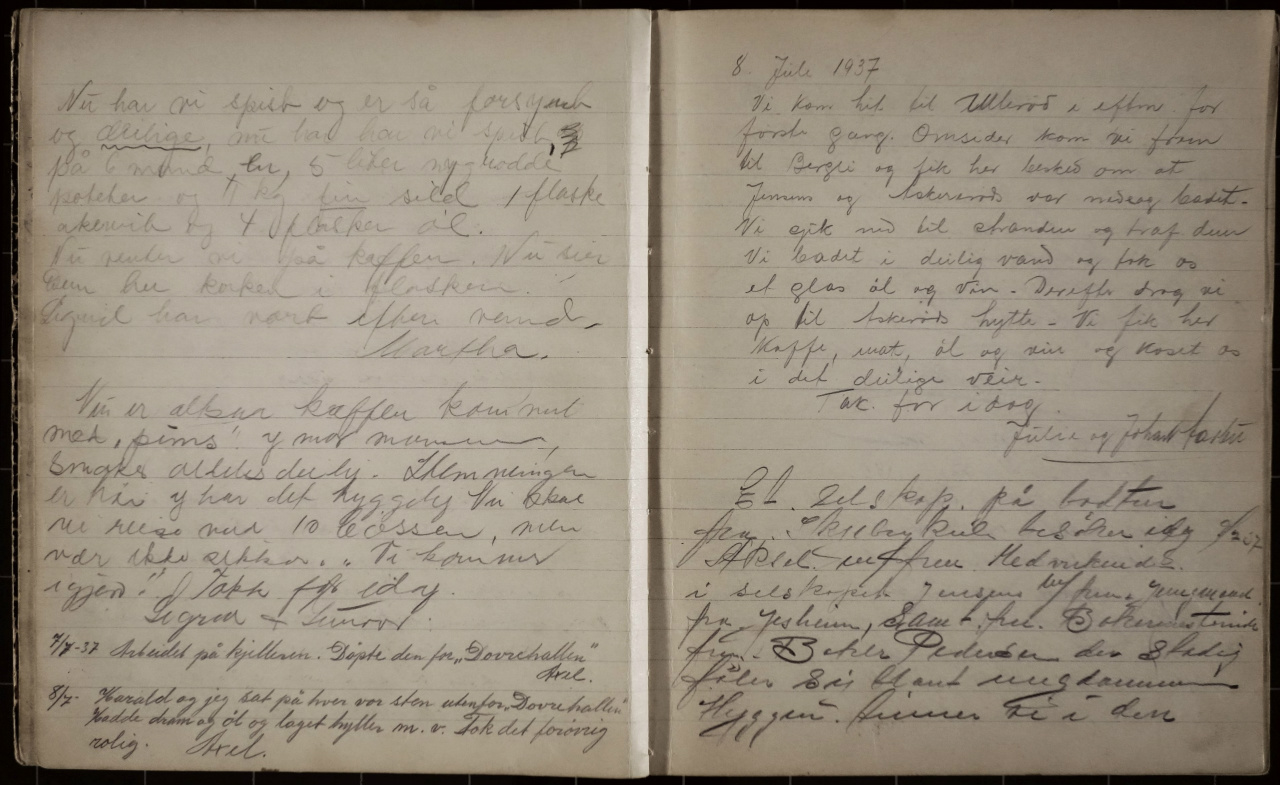 Nu har vi spist og er så forsynt
og deilige, nu ha har vi spist
på 6 mand, 5 liter nygrodde
poteter og 1 kg fin sild 1 flaske
akevit og 4 flasker öl.
Nu venter vi på kaffen. Nu sier
her korken i flasken.
Sigrid har vært efter vand.
Martha.
Nu er altsaa kaffen kommet
med "pims" y mor mannen,
smaker aldeles deilig. Stemningen
er høi y har det hyggelig Nu skal
vi reise med 10 bussen, men
vær ikke sikker. "Vi kommer
igjen"! Takk for idag.
Sigrid &
7/7-37 Arbeidet på kjelleren. Døpte den for "Dovrehallen"
Axel.
8/7- Harald og jeg sat på hver vor sten utenfor "Dovrehallen"
Hadde dram og öl og laget hyller m. v. Tok det forøvrig
rolig. Axel.
8. Juli 1937
Vi kom hit til Ullerød i efterm for
første gang. Omsider kom vi frem
til Bergli og fik her besked om at
Jensens og Askerøds var nede og badet.
Vi gik ned til stranden og traf dem
Vi badet i deilig vand og fik os
et glas øl og vin. Derefter drog vi
op til Askerøds hytte. Vi fik her
Kaffe, mat, öl og vin og koset os
i det deilige veir.
Tak for idag.
Julie og Johan
Et selskap på
fra besøker idag
Aksel m/ fru Medvirkende
i selskapet Jensens m/ fru,
fra Jesheim, Samt fru
fru. Baker Pedersen der Stadig
føler Sig blant ungdommen
Hyggen finner vi i den